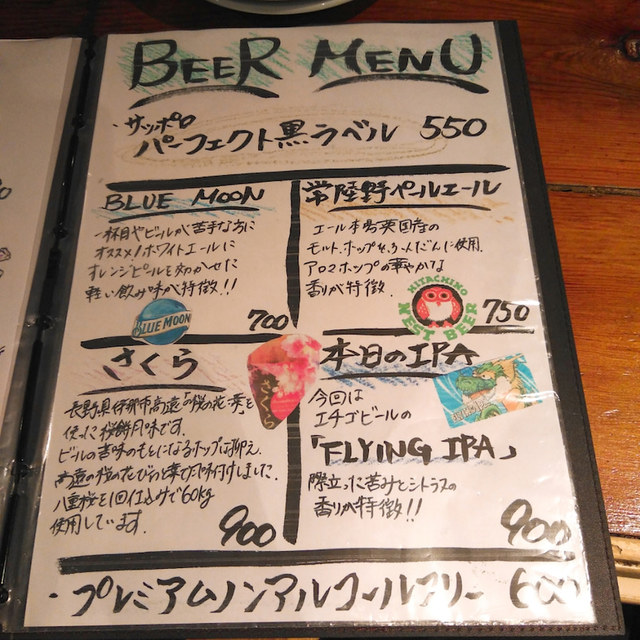 BEER MENU
・サッポロ
パーフェクト黒ラベル 550
BLUE MOON
一杯目やビールが苦手な方に
オススメ!ホワイトエールに
オレンジピールを効かせた
軽い飲み味が特徴!!
BLUE MOON
700
常陸野ペールエール
エール本場英国産の
モルト、ホップをふんだんに使用。
アロマホップの華やかな
香りが特徴。
HITACHINO
NEST BEER
750
さくら
長野県伊那市高遠の桜の花・葉を
使った桜餅風味です。
ビールの苦味のもとになるホップは抑え、
高遠の桜の花びらと葉で風味付けしました。
八重桜を1回仕込みで60kg
使用しています。
さくら
900
本日のIPA
今回は
エチゴビールの
「FLYING IPA」
際立った苦みとシトラスの
香りが特徴!!
900
・プレミアムノンアルコールフリー 600